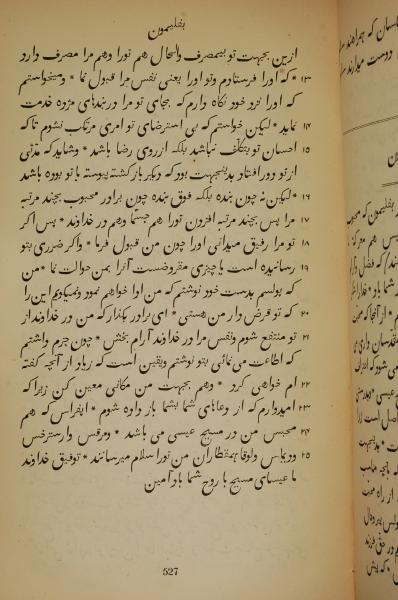 بفلیمون
ازین بجهت تو بیمصرف والحال هم تورا وهم مرا مصرف دارد
۱۳ * که اورا فرستادم وتو اورا یعنی نفس مرا قبول نما * ومیخواستم
که اورا نزد خود نگاه دارم که بجای تو مرا در بندهای مژده خدمت
۱۴ نماید * لیکن نخواستم که بی استرضای تو امری مرتکب نشوم تا که
۱۵ احسان تو بتکلّف نباشد بلکه از روی رضا باشد * وشاید که مدّتی
از تو دور افتاد بدینجهت بود که دیگر بازگشته پیوسته با تو بوده باشد
۱۶ * لیکن نه چون بنده بلکه فوق بنده چون برادر محبوب بچند مرتبه
۱۷ مرا پس بچند مرتبه افزون تورا هم جسمًا وهم در خداوند * پس اگر
۱۸ تو مرا رفیق میدانی اورا چون من قبول فرما * واگر ضرری بتو
۱۹ رسانیده است یا چیزی مقروضست آنرا بمن حوالت نما * من
که پولسم بدست خود نوشتم که من ادا خواهم نمود ونمیگویم این را
۲۰ که تو قرض دار من هستی * ای برادر بگذار که من در خداوند از
۲۱ تو منتفع شوم ونفس مرا در خداوند آرام بخش * چون جزم داشتم
که اطاعت می نمائی بتو نوشتم ویقین است که زیاد از آنچه گفته
۲۲ ام خواهی کرد * وهم بجهت من مکانی معین کن زیرا که
۲۳ امیدوارم که از دعاهای شما بشما باز داده شوم * اپفراس که هم
۲۴ محبس من در مسیح عیسی می باشد * ومرقس وارسترخس
۲۵ ودیماس ولوقا همقطاران من تورا سلام میرسانند * توفیق خداوند
ما عیسای مسیح با روح شما باد آمین
527